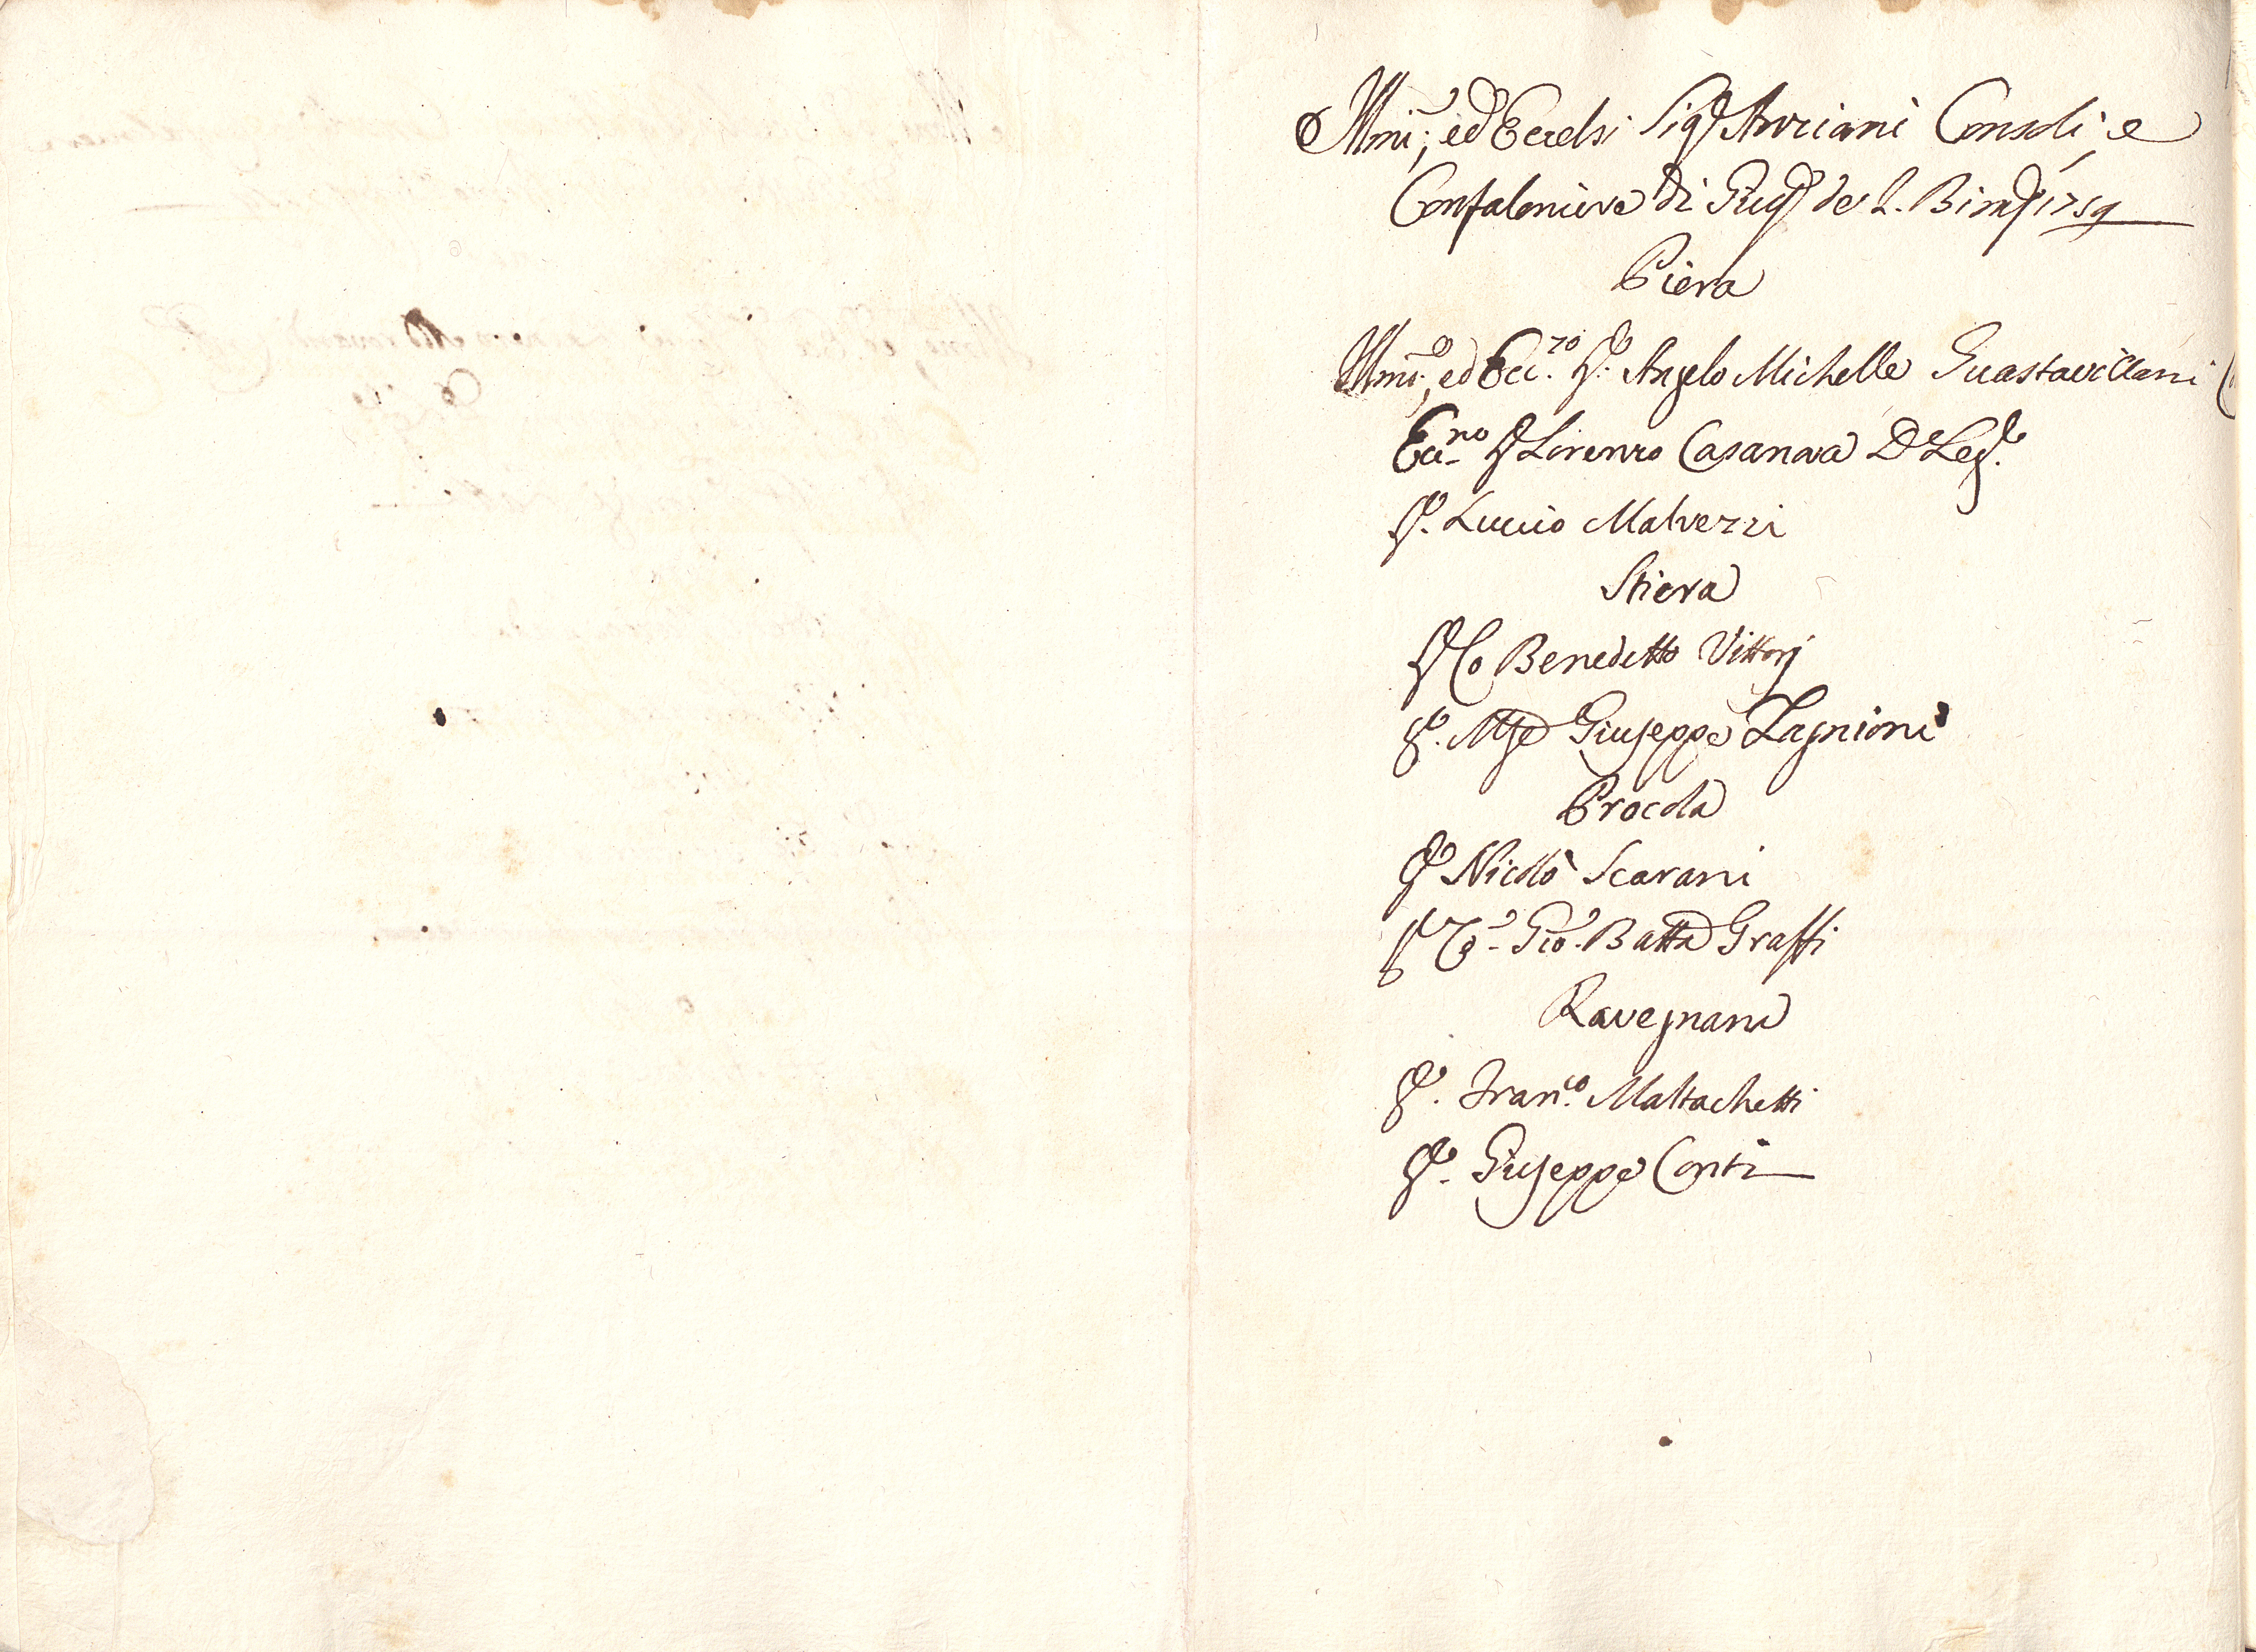 Illmi, ed Eccelsi Sigri Anziani Consoli, e
Confaloniere di Giug. de l. Bimre 1759
Piera
Illmo, ed Ecc.so Sr. Angelo Michelle Guastavillani
Ecc.mo Sr Lorenzo Casanova D Leg.
Sr. Luccio Malvezzi
Stiera
Sr Co Benedetto Vittorj
Sr. Mse Giuseppe Zagnioni
Procola
Sr Nicolò Scarani
Sr Co. Gio. Batta Graffi
Ravegnana
Sr. Fran.co Maltachetti
Sr. Giuseppe Conti